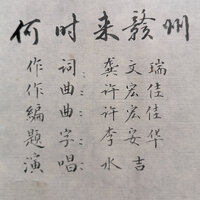 何时来赣州
作词：龚文瑞
作曲：许宏佳
编曲：许宏佳
题字：李安华
演唱：水吉